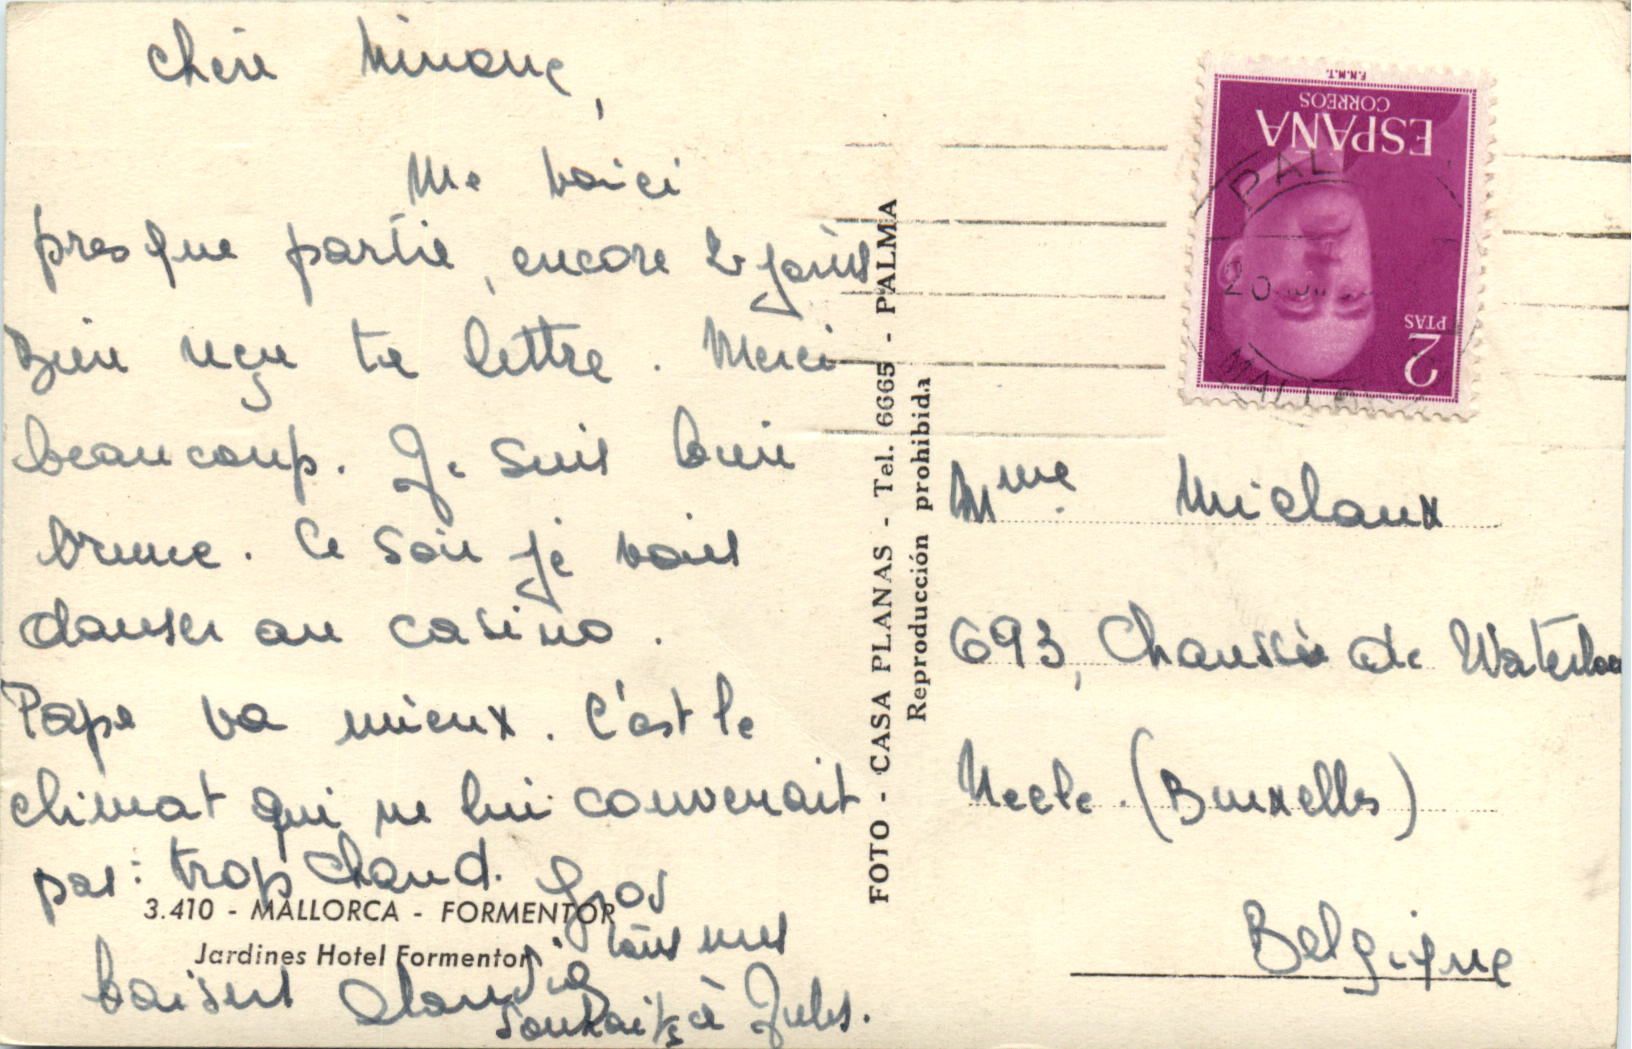 Chère Minou,
Me voici
presque partie, encore 2 jours
Bien reçu ta lettre. Merci
beaucoup. Je suis bien
brune. Ce soir je vais
danser au casino.
Papa va mieux. C'est le
climat qui ne lui convenait
pas: trop chaud. Gros
baisers Claudia
tous mes
souhaits à Jules.
3.410 - MALLORCA - FORMENTOR
Jardines Hotel Formentor
FOTO - CASA PLANAS - Tel. 6665 - PALMA
Reproducción prohibida
F.N.M.T.
CORREOS
ESPAÑA
2
PTAS
PAL
20
MALLORC
Mme.
693, Chaussée de Waterloo
Uccle. (Bruxelles)
Belgique